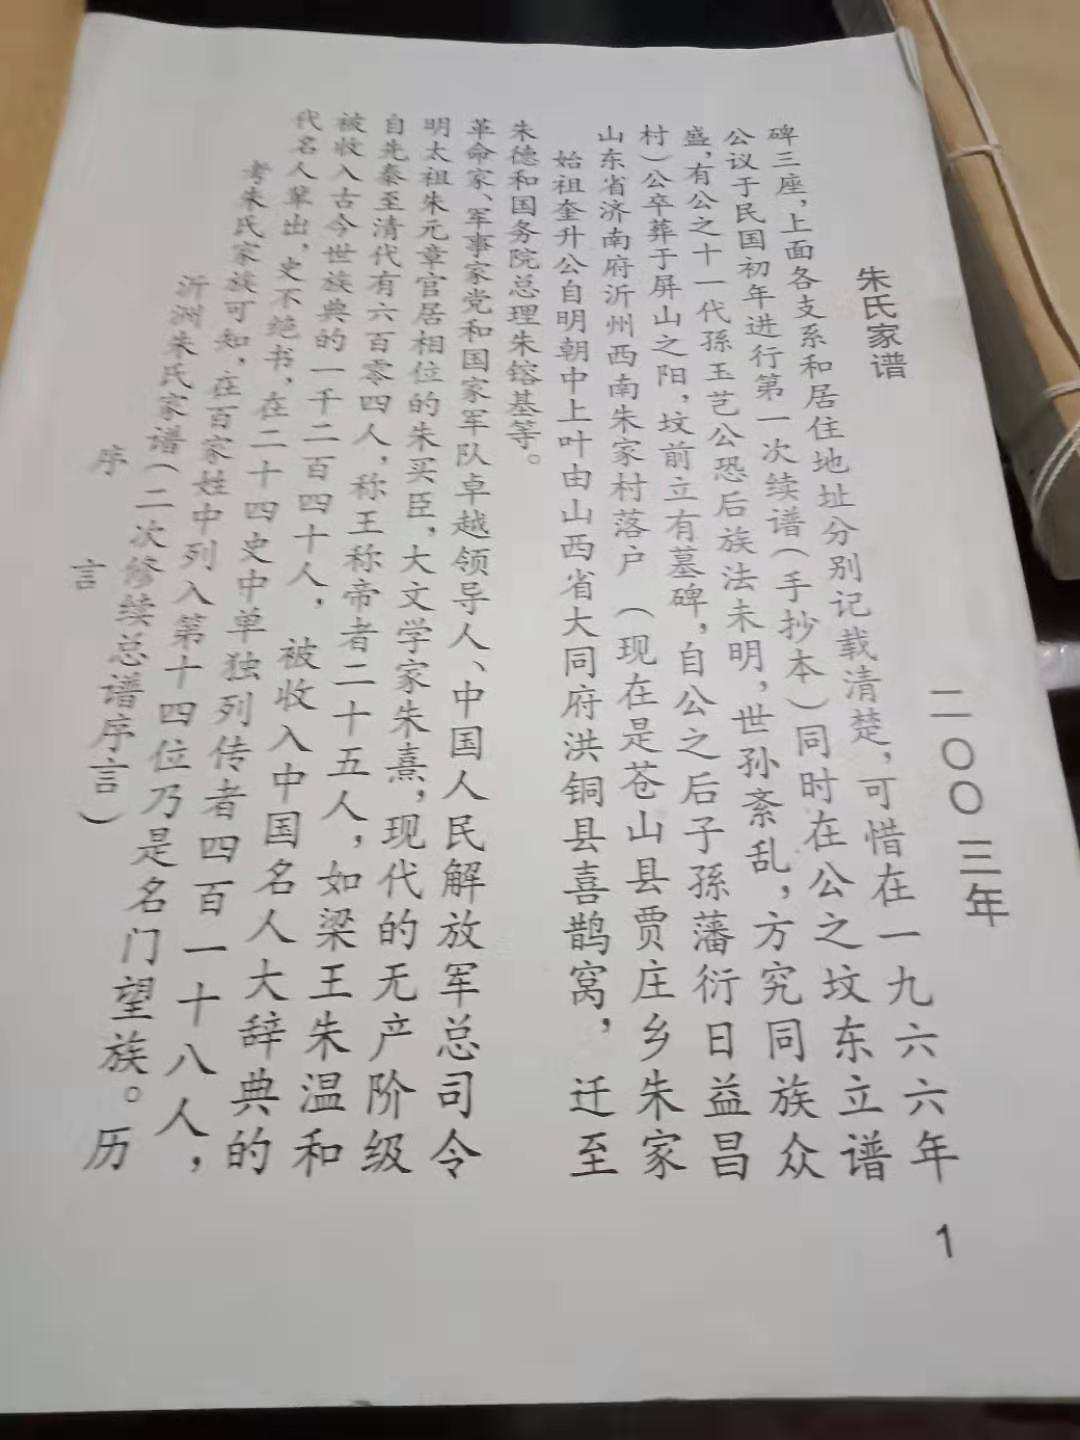 序言
沂洲朱氏家谱（二次修续总谱序言）
考朱氏家族可知，在百家姓中列入第十四位乃是名门望族。历
代名人辈出，史不绝书，在二十四史中单独列传者四百一十八人，
被收入古今世族典的一千二百四十人，被收入中国名人大辞典的
自先秦至清代有六百零四人，称王称帝者二十五人，如梁王朱温和
明太祖朱元章官居相位的朱买臣，大文学家朱熹，现代的无产阶级
革命家、军事家党和国家军队卓越领导人、中国人民解放军总司令
朱德和国务院总理朱镕基等。
始祖奎升公自明朝中上叶由山西省大同府洪铜县喜鹊窝，迁至
山东省济南府沂州西南朱家村落户（现在是苍山县贾庄乡朱家
村）公卒葬于屏山之阳，坟前立有墓碑，自公之后子孫藩衍日益昌
盛，有公之十一代孫玉艺公恐后族法未明，世孙紊乱，方究同族众
公议于民国初年进行第一次续谱（手抄本）同时在公之坟东立谱
碑三座，上面各支系和居住地址分别记载清楚，可惜在一九六六年
朱氏家谱
二〇〇三年
1